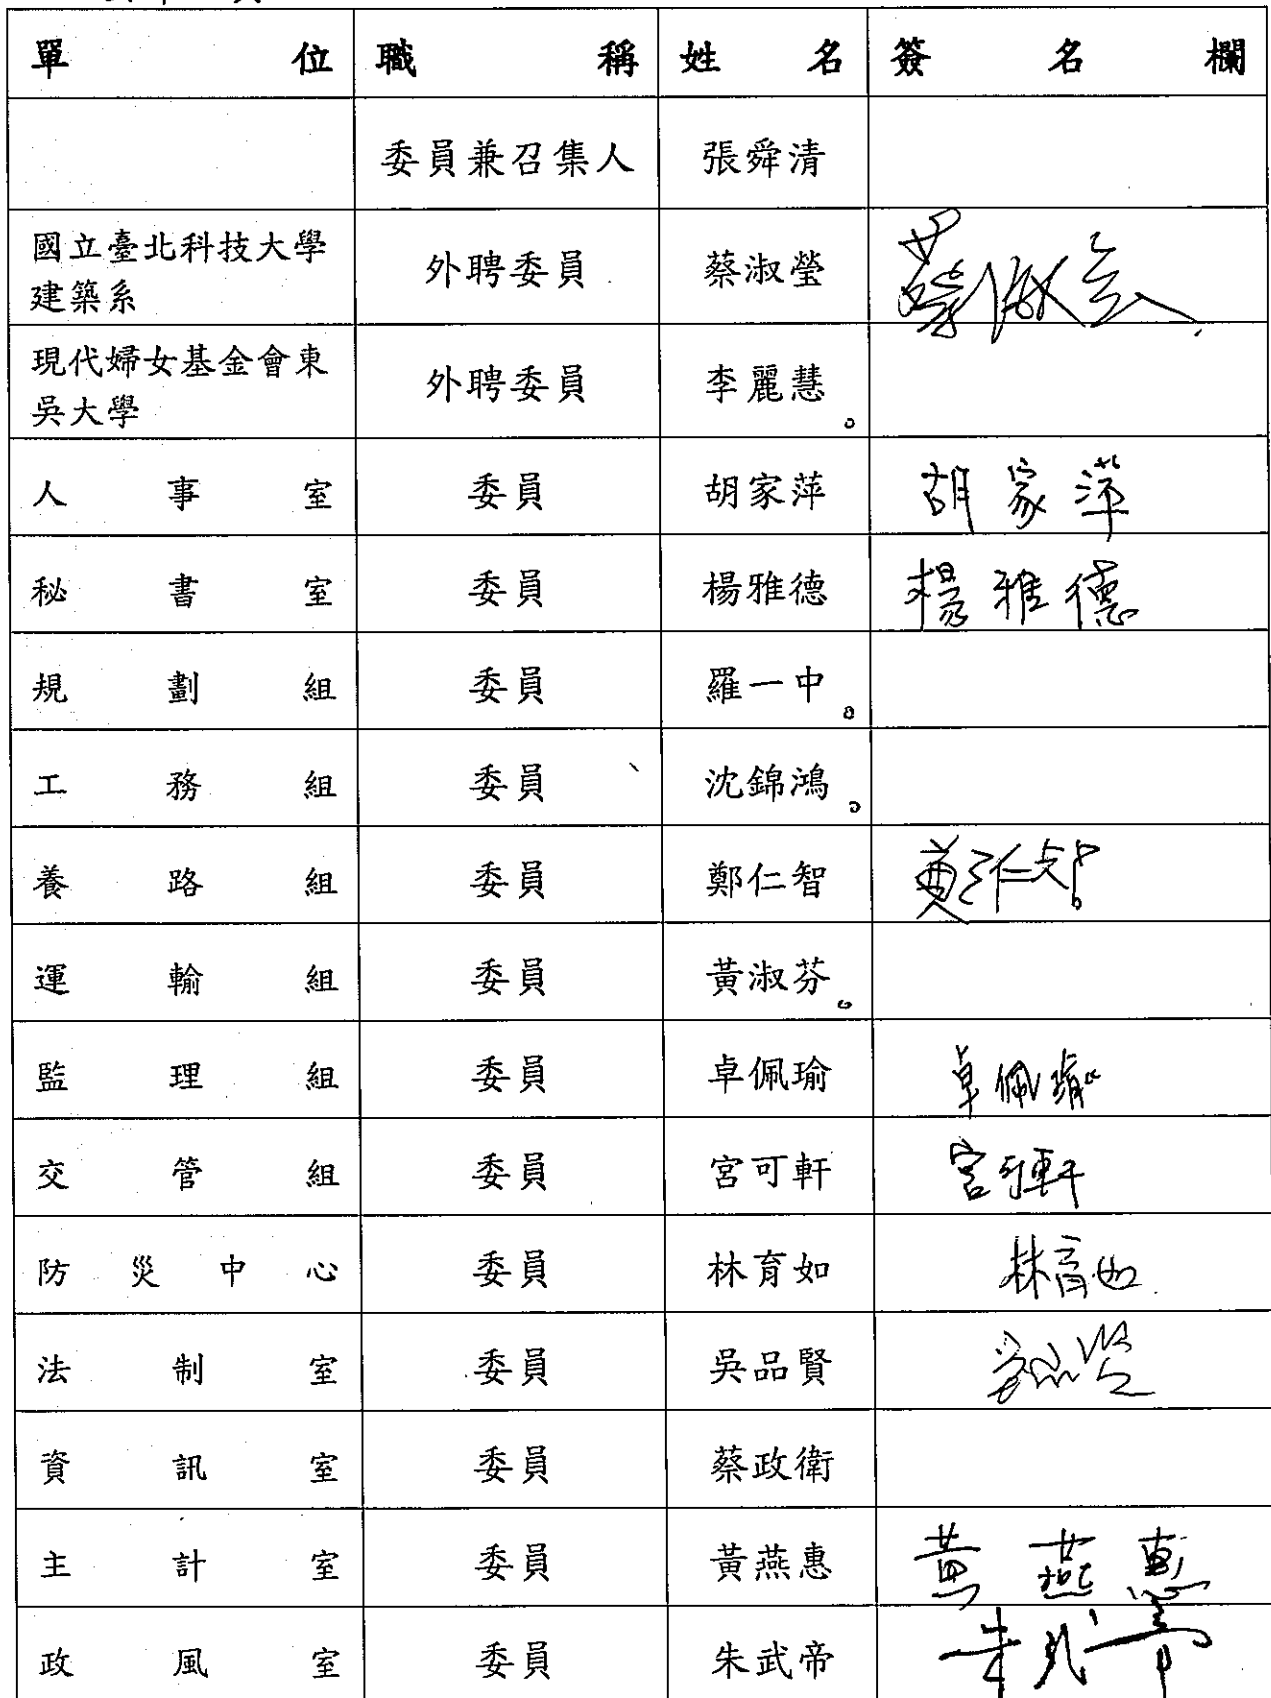 單位 職稱 姓名 簽名欄
委員兼召集人 張舜清
國立臺北科技大學
建築系 外聘委員 蔡淑瑩 蔡淑瑩
現代婦女基金會東
吳大學 外聘委員 李麗慧
人事室 委員 胡家萍 胡家萍
秘書室 委員 楊雅德 楊雅德
規劃組 委員 羅一中
工務組 委員 沈錦鴻
養路組 委員 鄭仁智 鄭仁智
運輸組 委員 黃淑芬
監理組 委員 卓佩瑜 卓佩瑜
交管組 委員 宮可軒 宮可軒
防災中心 委員 林育如 林育如
法制室 委員 吳品賢 吳品賢
資訊室 委員 蔡政衛
主計室 委員 黃燕惠 黃燕惠
政風室 委員 朱武帝 朱武帝